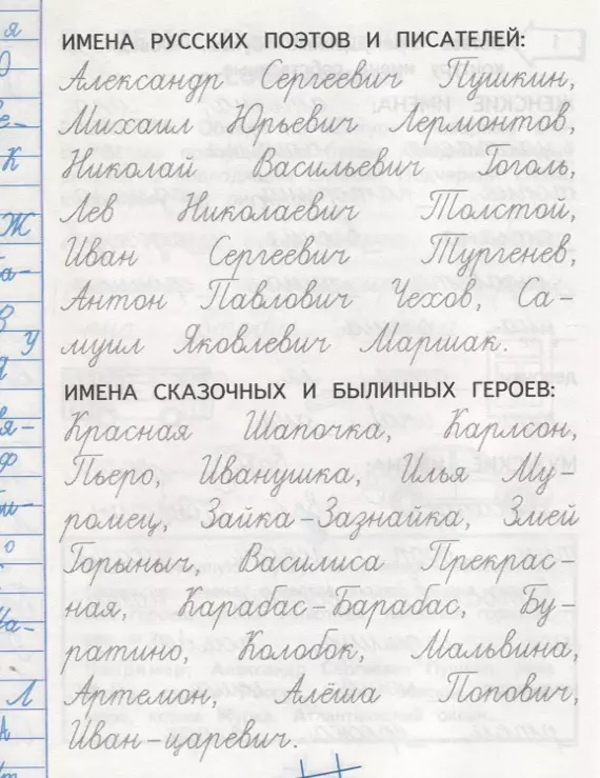 ИМЕНА РУССКИХ ПОЭТОВ И ПИСАТЕЛЕЙ:
Александр Сергеевич Пушкин,
Михаил Юрьевич Лермонтов,
Николай Васильевич Гоголь,
Лев Николаевич Толстой,
Иван Сергеевич Тургенев,
Антон Павлович Чехов, Са-
муил Яковлевич Маршак.
ИМЕНА СКАЗОЧНЫХ И БЫЛИННЫХ ГЕРОЕВ:
Красная Шапочка, Карлсон,
Пьеро, Иванушка, Илья Му-
ромец, Зайка-Зазнайка, Змей
Горыныч, Василиса Прекрас-
ная, Карабас-Барабас, Бу-
ратино, Колобок, Мальвина,
Артемон, Алёша Попович,
Иван-царевич.